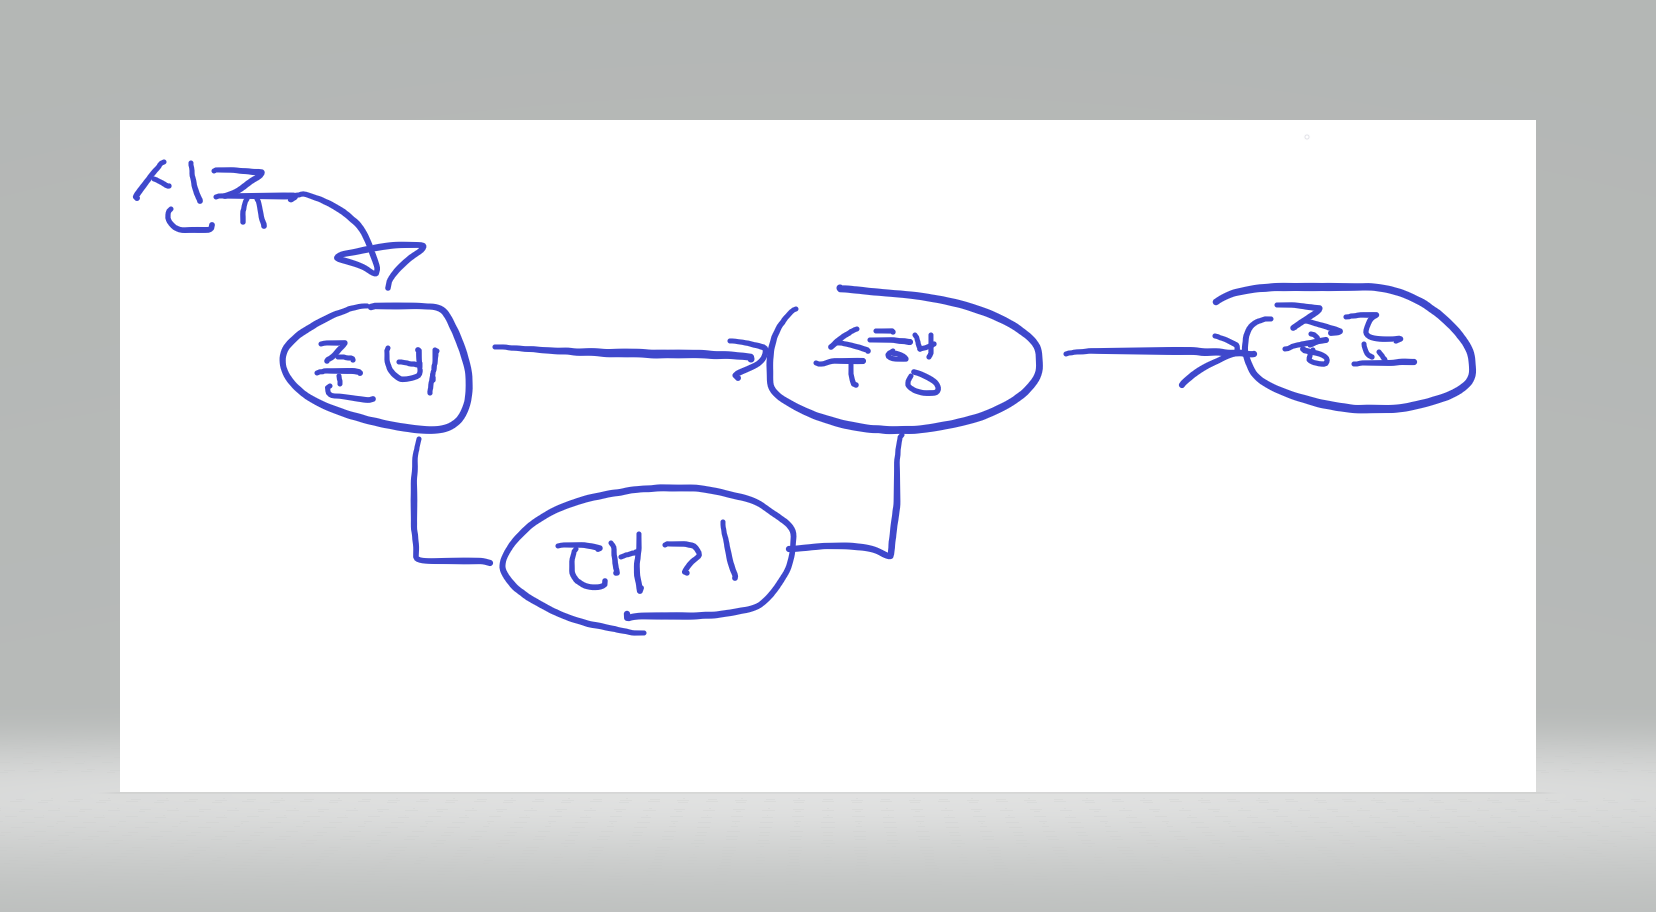 신규
준비
수행
종료
대기